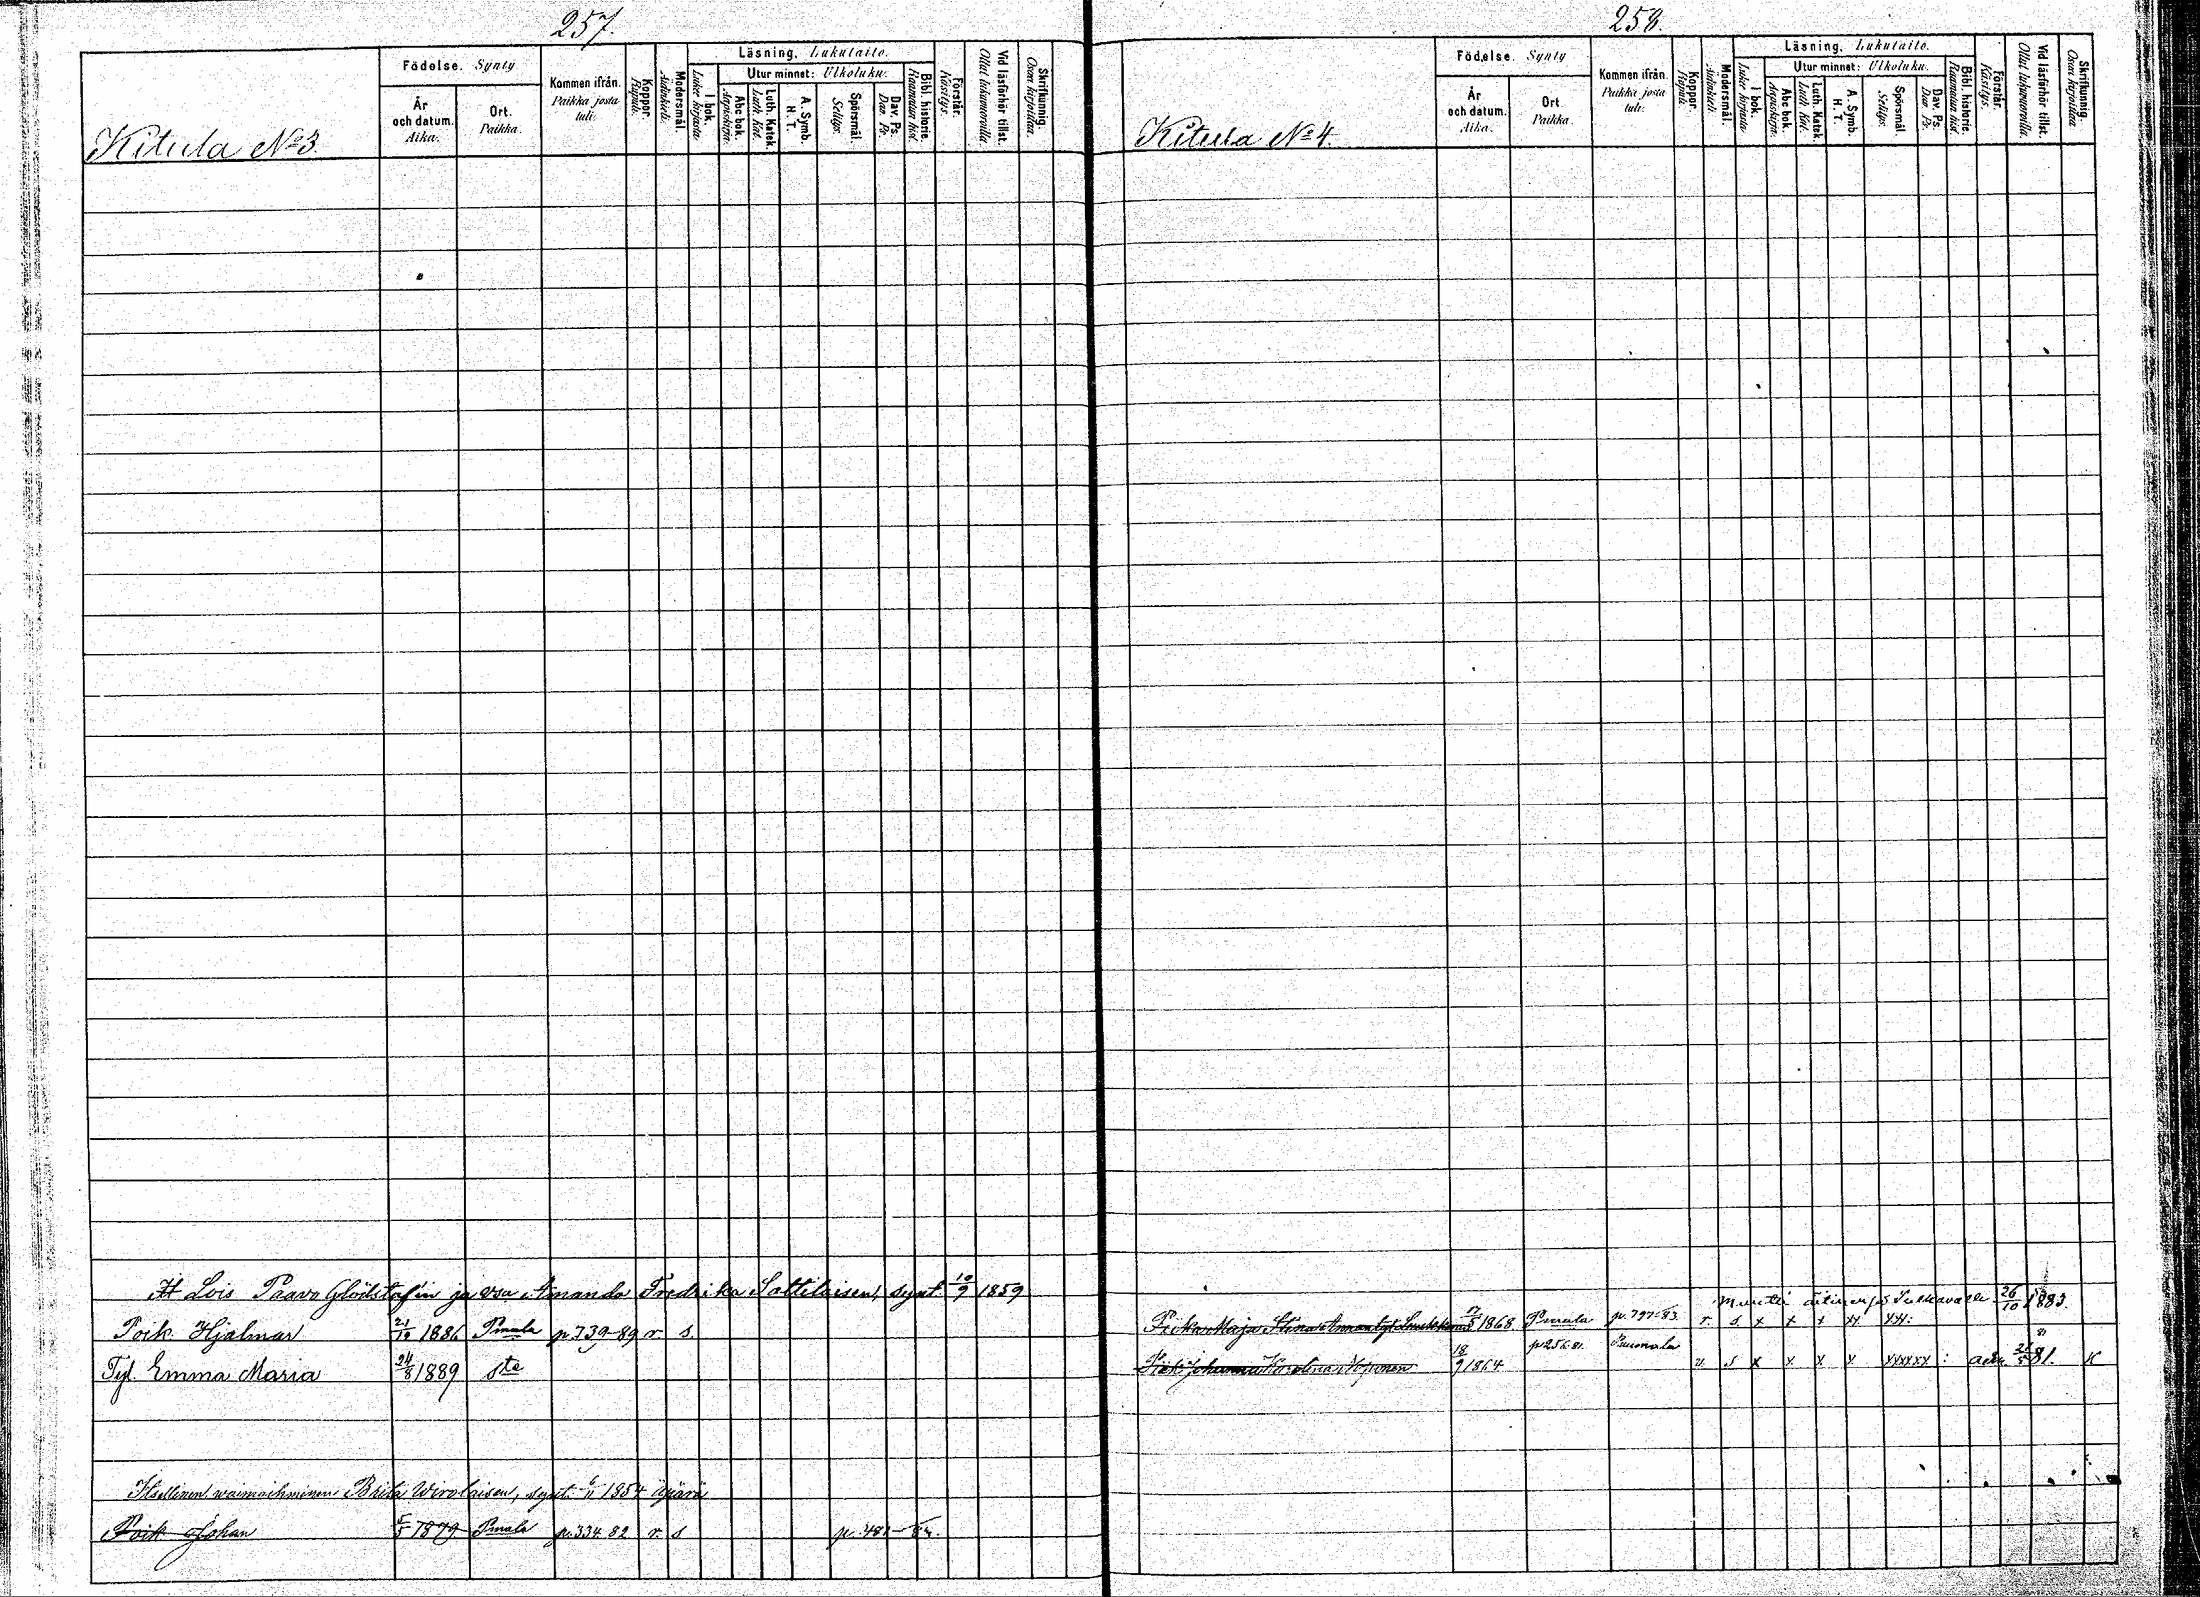 257.
Kitula No 3.
Födelse. Synty
År och datum. Aika.
Ort. Paikka.
Kommen ifrån. Paikka josta tuli.
Koppor. Rupuli.
Modersmål. Äidinkieli.
Läsning. Lukutaito.
I bok. Lukee kirjasta.
Utur minnet: Ulkoluku.
Abc bok. Aapiskirja.
Luth. Katek. Luth. Kat.
A. Symb. H. T.
Spörsmål. Selitys.
Dav. Ps. Dav. Ps.
Bibl. historie. Raamatun hist.
Förstår. Käsitys.
Vid läsförhör tillst. Ollut lukuvuorolla
Skrifkunnig. Osaa kirjoittaa
It Lois Paavo Glödstaf'in ja vsa Amanda Fredrika Sattilaisen, synt. 10/9 1859
Poik. Hjalmar 21/10 1886 Pmala p. 739-89 r. s.
Tyt. Emma Maria 24/8 1889 ste
Itsellinen waimoihminen Brita Wirolaisen, synt. 6/11 1854 äpärä
Poik Johan 5/5 1879 Pmala p. 334 82 r. s p. 481-
258.
Kitula No 4.
Födelse. Synty
År och datum. Aika.
Ort. Paikka.
Kommen ifrån. Paikka josta tuli.
Koppor. Rupuli.
Modersmål. Äidinkieli.
Läsning. Lukutaito.
I bok. Lukee kirjasta.
Utur minnet: Ulkoluku.
Abc bok. Aapiskirja.
Luth. Katek. Luth. Kat.
A. Symb. H. T.
Spörsmål. Selitys.
Dav. Ps. Dav. Ps.
Bibl. historie. Raamatun hist.
Förstår. Käsitys.
Vid läsförhör tillst. Ollut lukuvuorolla
Skrifkunnig. Osaa kirjoittaa
Muutti äitinensä Sulkavalle 26/10 1883.
Piika Maja Stina 1868 Pmala p. 797-83. r. s x x x xx xx:
Johanna Karolina 18/9 1864 p 256. 81. Puumala v. s x x x x xxxxxx : 81. x